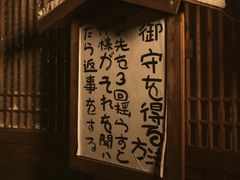 御守を得る方法
先を3回揺らすと
様がそれを聞い
たら返事をする